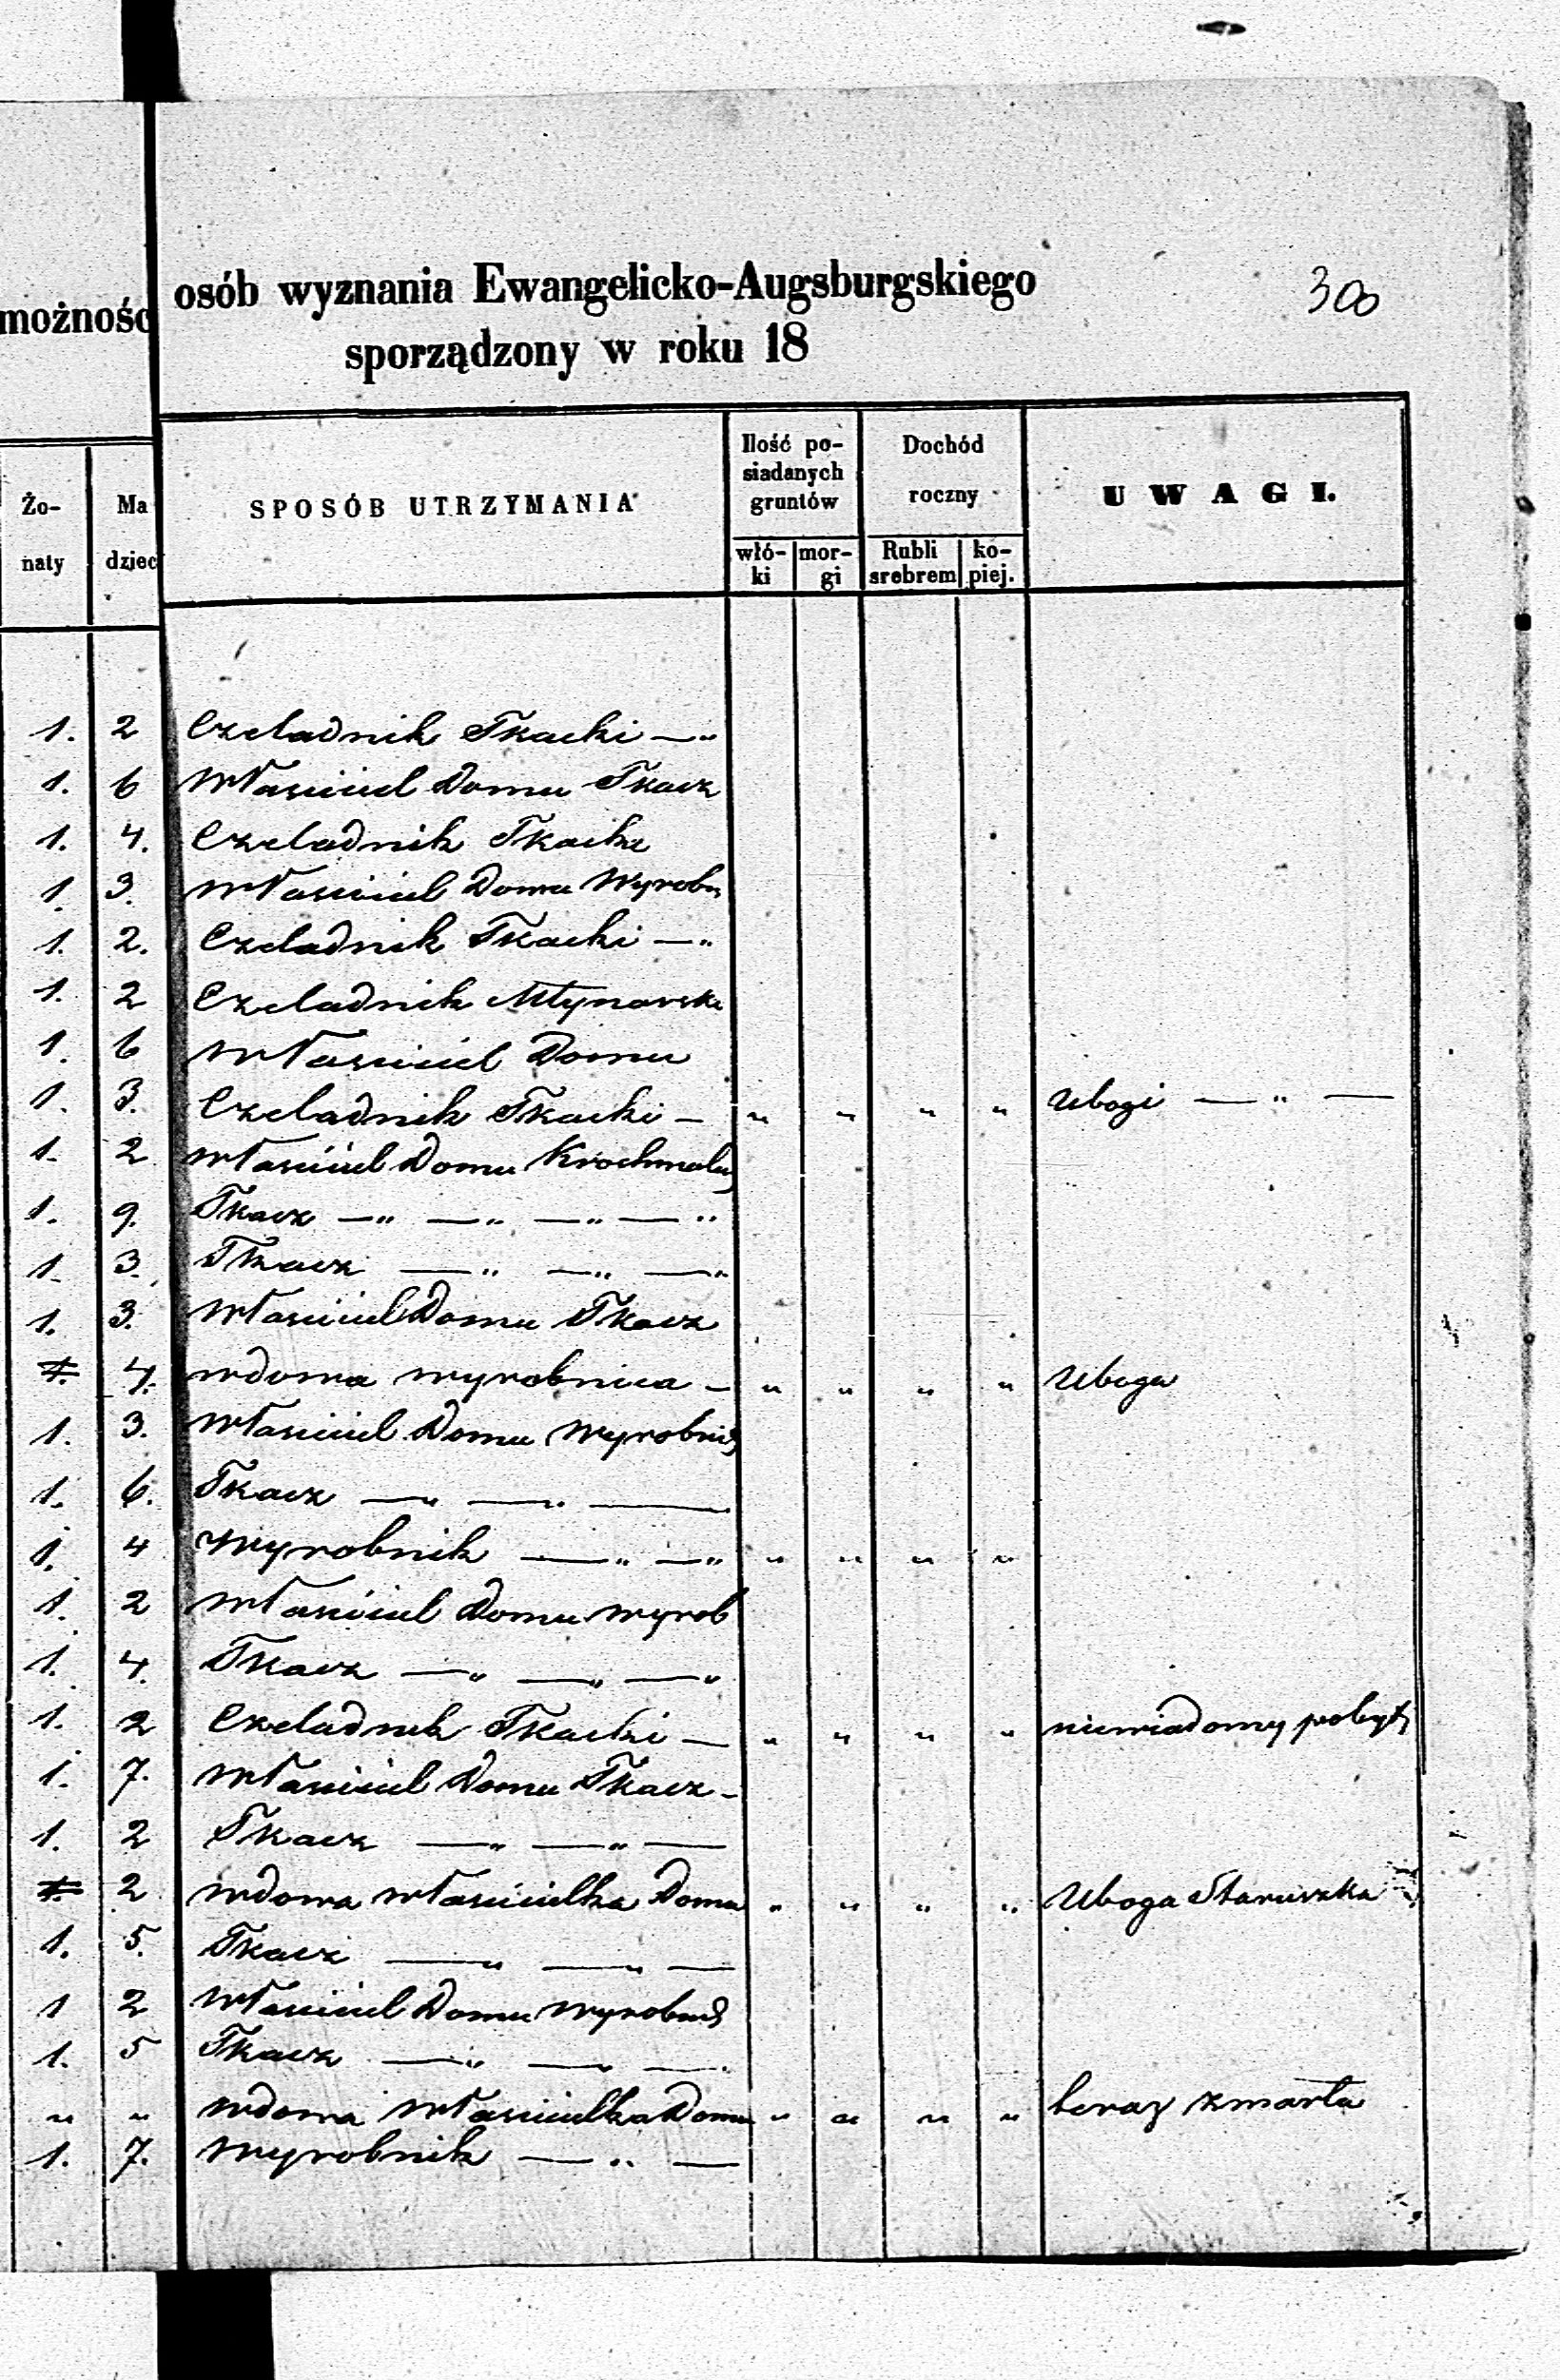 możność osób wyznania Ewangelicko-Augsburgskiego 300
sporządzony w roku 18
Żo-naty Ma dziec SPOSÓB UTRZYMANIA Ilość po-siadanych gruntów Dochód roczny UWAGI.
włó-ki mor-gi Rubli srebrem ko-piej.
1. 2 Czeladnik Tkacki — "
1. 6 Własciciel Domu Tkacz
1. 4. Czeladnik Tkacki
1. 3. Własciciel Domu Wyrobn
1. 2. Czeladnik Tkacki — "
1. 2 Czeladnik Młynarski
1. 6 Własciciel Domu
1. 3. Czeladnik Tkacki — " " " " Ubogi — " —
1. 2 Własciciel Domu Krochmaln
1. 9. Tkacz — " — " — " — "
1. 3. Tkacz — " — " — "
1. 3. Własciciel Domu Tkacz
1. 4. wdowa wyrobnica — " " " " Uboga
1. 3. Własciciel Domu Wyrobnik
1. 6. Tkacz — " — " —
1. 4 Wyrobnik — " — " " " " "
1. 2 Własciciel Domu wyrob
1. 4. Tkacz — " — " — "
1. 2 Czeladnik Tkacki — " " " " niewiadomy pobyt
1. 7. Własciciel Domu Tkacz —
1. 2 Tkacz — " — " —
1. 2 wdowa włascicielka Domu " " " " Uboga Staruszka
1. 5. Tkacz — " — " —
1 2 Własciciel Domu wyrobnik
1. 5 Tkacz — " — " — "
" " wdowa Włascicielka Domu " " " " teraz zmarła
1. 7. Wyrobnik — " —